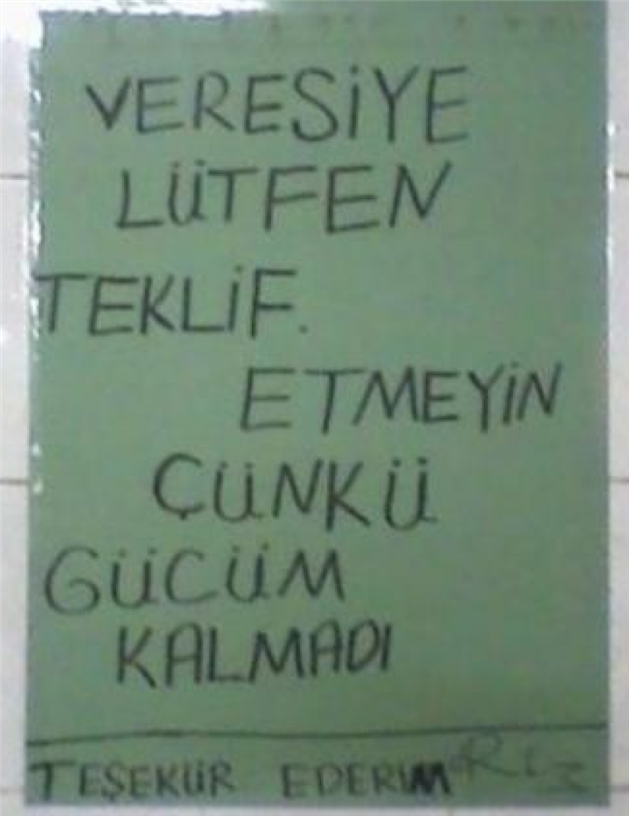 VERESİYE
LÜTFEN
TEKLİF.
ETMEYİN
ÇÜNKÜ
GÜCÜM
KALMADI
TEŞEKÜR EDERİM